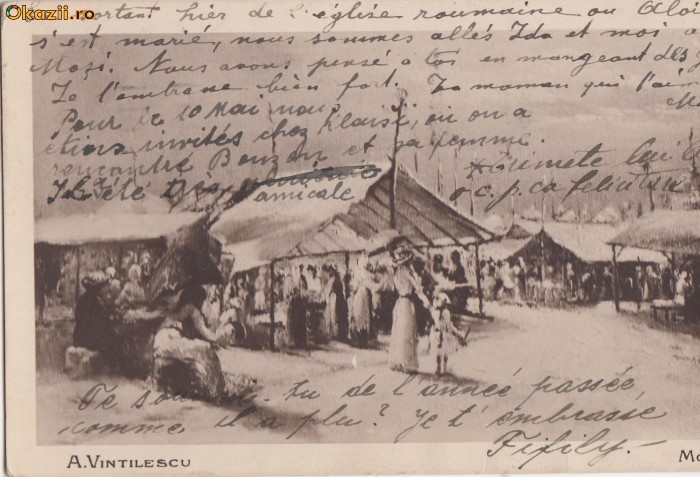 Okazii.ro
En sortant hier de l'église roumaine ou Aloi
s'est marié, nous sommes allés Ida et moi a
Mozi. Nous avons pensé à toi en mangeant des
Je t'embrasse bien fort. Ta maman qui t'aim
Pour le 10 Mai nous
étions invités chez Klausi, ou on a
rencontré Bouzon et sa femme.
Il a été très amicale
* Trimete lui
o c.p. ca felicitari
Te souviens-tu de l'année passée
comme il a plu? Je t'embrasse
Fifily.
A. VINTILESCU
Mo